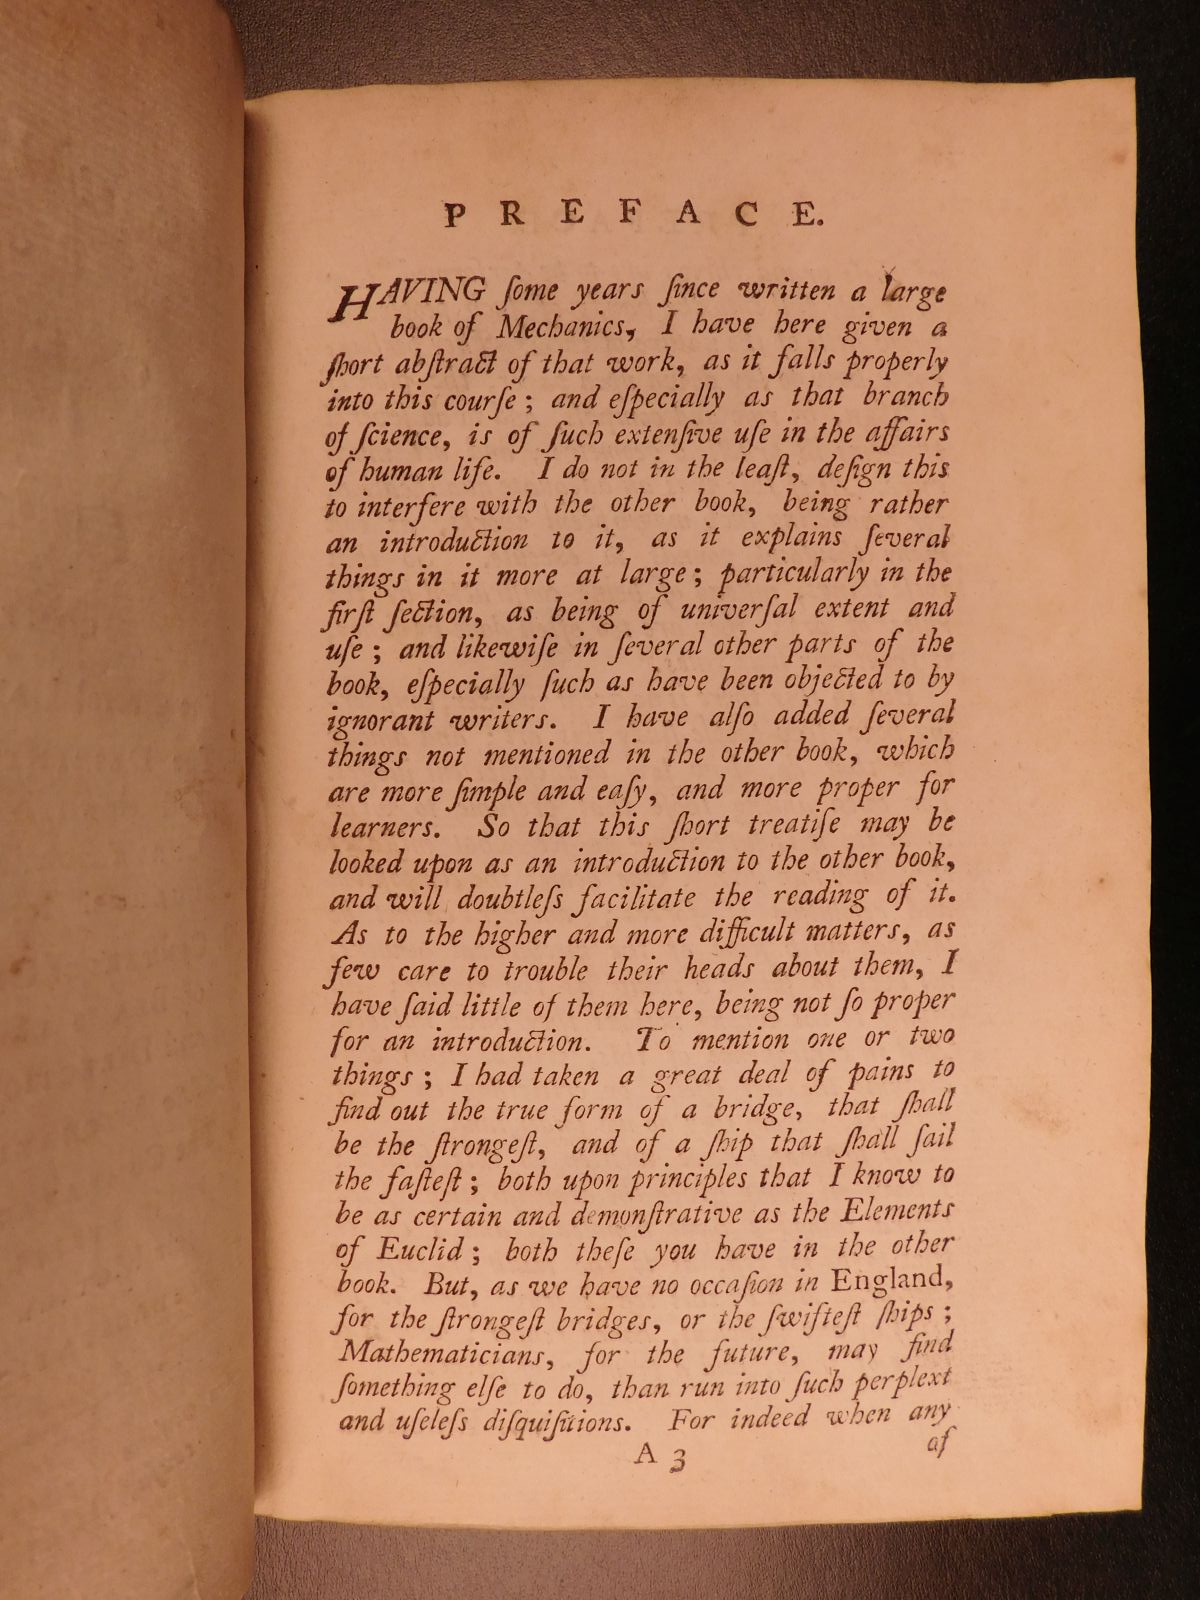 PREFACE.
HAVING ſome years ſince written a large
book of Mechanics, I have here given a
ſhort abſtract of that work, as it falls properly
into this courſe ; and eſpecially as that branch
of ſcience, is of ſuch extenſive uſe in the affairs
of human life. I do not in the leaſt, deſign this
to interfere with the other book, being rather
an introduction to it, as it explains ſeveral
things in it more at large ; particularly in the
firſt ſection, as being of univerſal extent and
uſe ; and likewiſe in ſeveral other parts of the
book, eſpecially ſuch as have been objected to by
ignorant writers. I have alſo added ſeveral
things not mentioned in the other book, which
are more ſimple and eaſy, and more proper for
learners. So that this ſhort treatiſe may be
looked upon as an introduction to the other book,
and will doubtleſs facilitate the reading of it.
As to the higher and more difficult matters, as
few care to trouble their heads about them, I
have ſaid little of them here, being not ſo proper
for an introduction. To mention one or two
things ; I had taken a great deal of pains to
find out the true form of a bridge, that ſhall
be the ſtrongeſt, and of a ſhip that ſhall ſail
the faſteſt ; both upon principles that I know to
be as certain and demonſtrative as the Elements
of Euclid ; both theſe you have in the other
book. But, as we have no occaſion in England,
for the ſtrongeſt bridges, or the ſwifteſt ſhips ;
Mathematicians, for the future, may find
ſomething elſe to do, than run into ſuch perplext
and uſeleſs diſquiſitions. For indeed when any
A 3
of